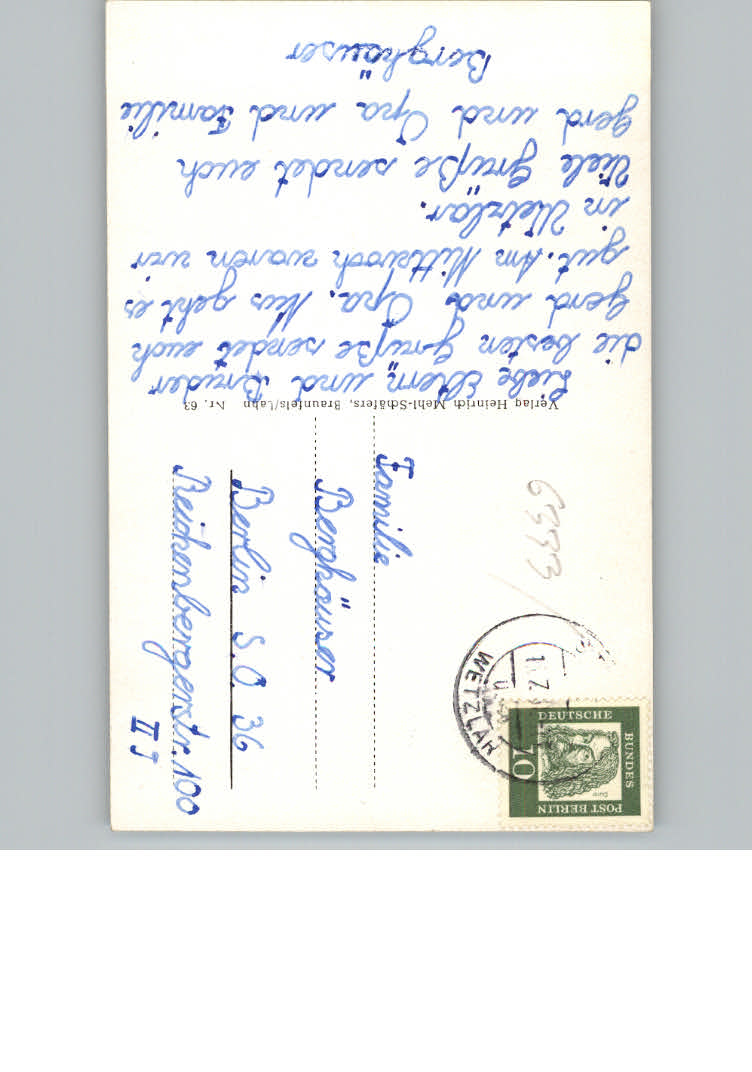 Liebe Eltern und Bruder
die besten Grüße sendet euch
Gerd und Opa. Uns geht es
gut. Am Mittwoch waren wir
in Wetzlar.
Viele Grüße sendet euch
Gerd und Opa und Familie
Berghäuser
Verlag Heinrich Mehl-Schäfers, Braunfels/Lahn Nr. 63
Familie
Berghäuser
Berlin S.O. 36
Reichenbergerstr. 100
II J
6333
WETZLAR
DEUTSCHE
BUNDES
POST BERLIN
10
Dürer